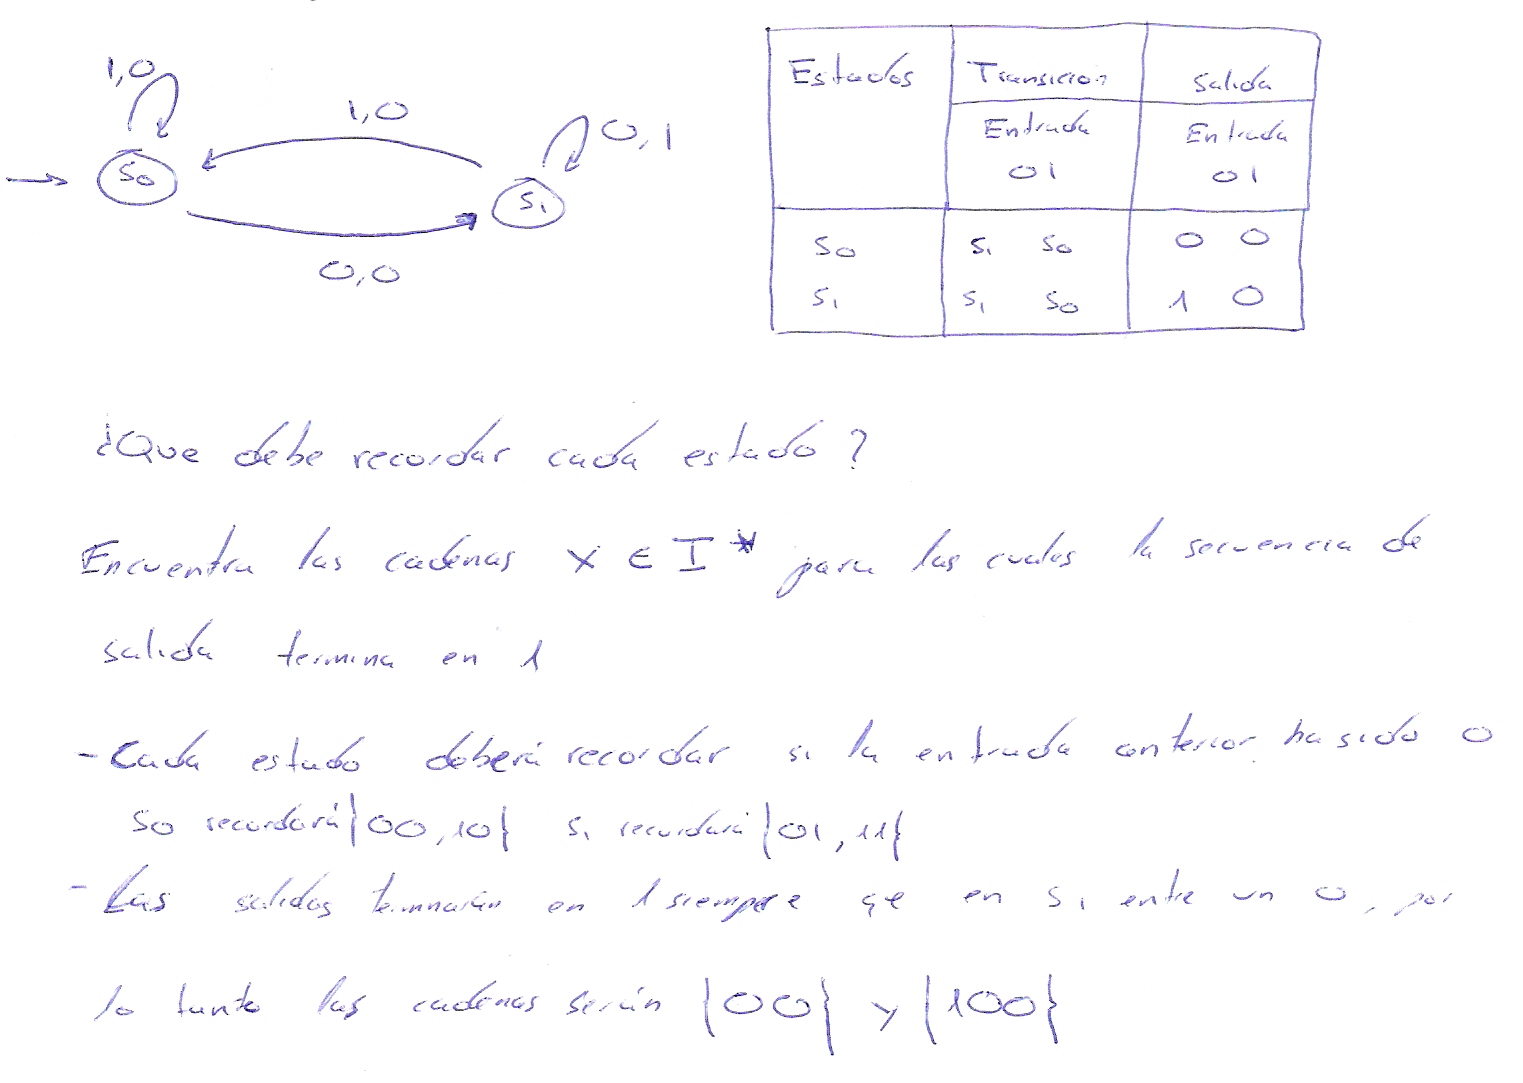 1,0
1,0
0,1
S0
S1
0,0
Estados Transicion Salida
Entrada Entrada
0 1 0 1
S0 S1 S0 0 0
S1 S1 S0 1 0
¿Que debe recordar cada estado?
Encuentra las cadenas x ∈ I* para las cuales la secuencia de
salida termina en 1
- Cada estado deberá recordar si la entrada anterior ha sido 0
S0 recordará {00,10} S1 recordará {01,11}
- Las salidas terminarán en 1 siempre qe en S1 entre un 0, por
lo tanto las cadenas serán {00} y {100}